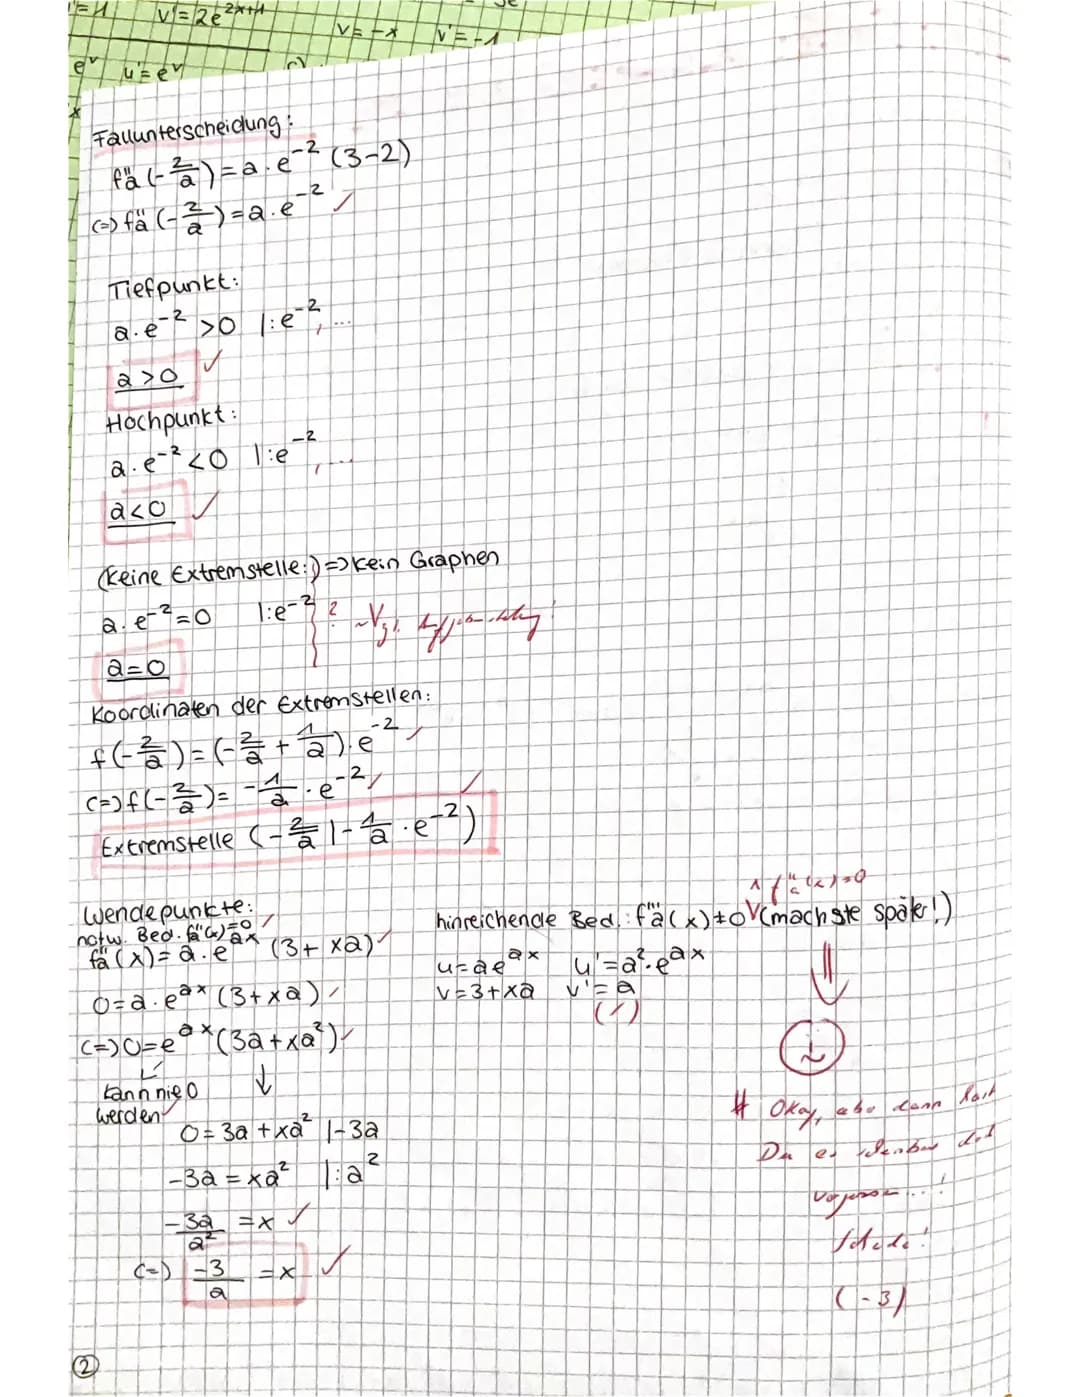 v'=2e^{2x+1}
v=-x v'=-1
e^v u'=e^v
c)
Fallunterscheidung:
fä''(-2/a)=a·e^{-2}(3-2)
(=) fä''(-2/a)=a·e^{-2} ✓
Tiefpunkt:
a·e^{-2} >0 |:e^{-2}, ...
a>0 ✓
Hochpunkt:
a·e^{-2}<0 |:e^{-2}, ...
a<0 ✓
(Keine Extremstelle:) => kein Graphen
a·e^{-2}=0 |:e^{-2} ? Vgl.
a=0
Koordinaten der Extremstellen:
f(-2/a)=(-2/a+1/a)·e^{-2} ✓
(=) f(-2/a)=-1/a·e^{-2} ✓
Extremstelle (-2/a|-1/a·e^{-2}) ✓
Wendepunkte:
notw. Bed. fa''(x)=0 ✓
fä''(x)=a·e^{ax}(3+xa) ✓
0=a·e^{ax}(3+xa) ✓
(=) 0=e^{ax}(3a+xa²) ✓
kann nie 0 ↓
werden ✓
0=3a+xa² |-3a
-3a=xa² |:a²
-3a/a²=x ✓
(=) -3/a=x ✓
∧ f''a(x)=0
hinreichende Bed.: fä'''(x)≠0 ∨ (machste später!)
u=ae^{ax} u'=a²·e^{ax}
v=3+xa v'=a
(✓)
Okay, aber dann hast
Du es offenbar doch
vergessen...!
Schade!
(-3)
②